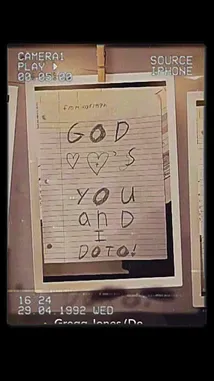 CAMERA1
PLAY
00:05:00
SOURCE
IPHONE
GOD
♡ ♡'S
YOU
anD
I
DOTO!
16 24
29.04.1992 WED